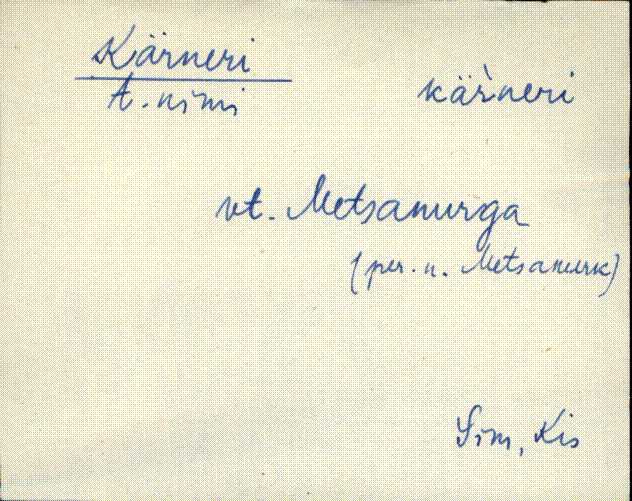 Kärneri
kär̀neri
t. nimi
vt. Metsanurga
(per. n. Metsanurk)
Sim, Kis